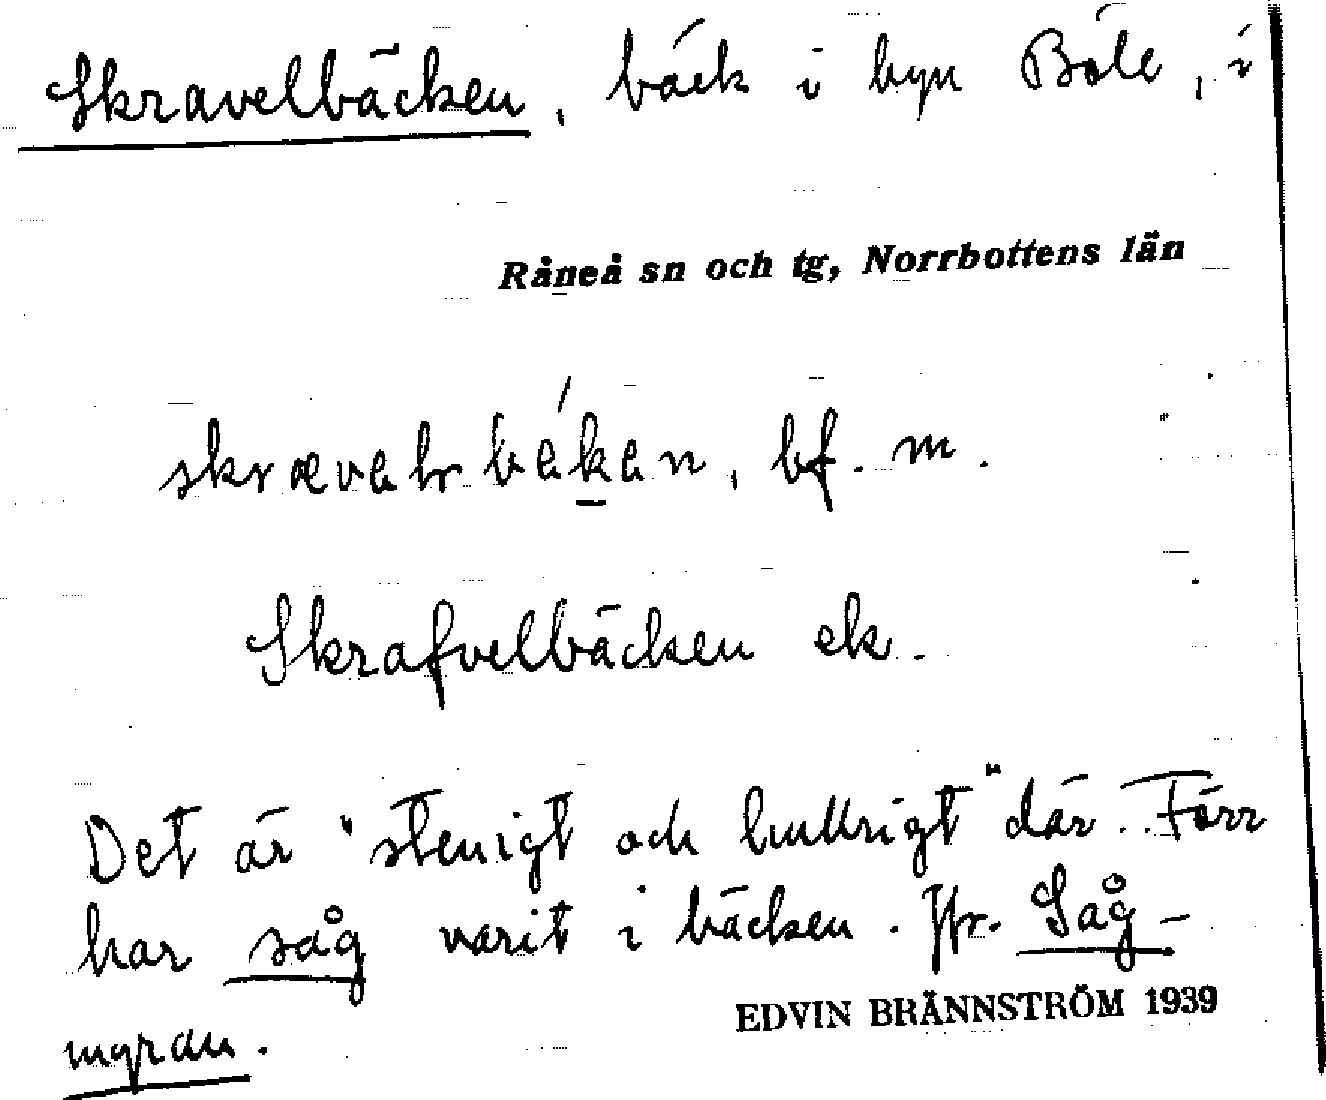 Skravelbäcken, bäck i byn Böle, i
Råneå sn och tg, Norrbottens län
bf. m.
Skrafvelbäcken ek.
Det är "stenigt och bullrigt" där. Förr
har såg varit i bäcken. Jfr. Såg-
myran.
EDVIN BRÄNNSTRÖM 1939